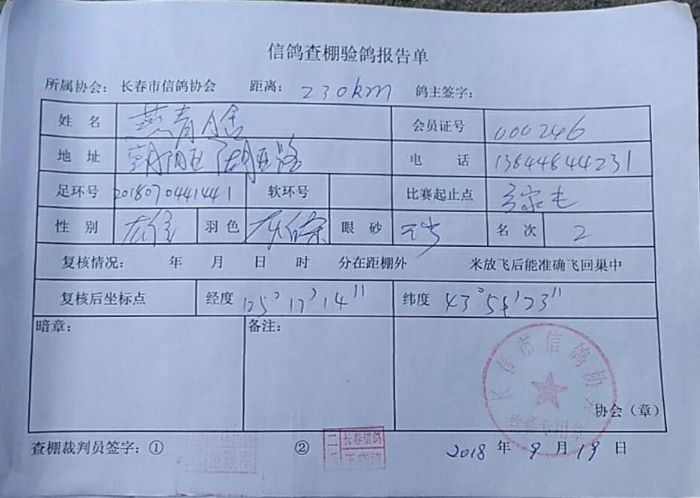 信鸽查棚验鸽报告单
所属协会: 长春市信鸽协会 距离: 230km 鸽主签字:
姓 名 燕青 会员证号 000246
地 址 朝阳区湖西路 电 话 13844844231
足环号 2018070441441 软环号 比赛起止点
性 别 羽色 灰 眼 砂 名 次 2
复核情况: 年 月 日 时 分在距棚外 米放飞后能准确飞回巢中
复核后坐标点 经度 125°17′14″ 纬度 43°54′23″
暗章: 备注:
长春市信鸽协会
协会（章）
查棚裁判员签字: ① ② 长春信鸽 2018 年 9 月 19 日